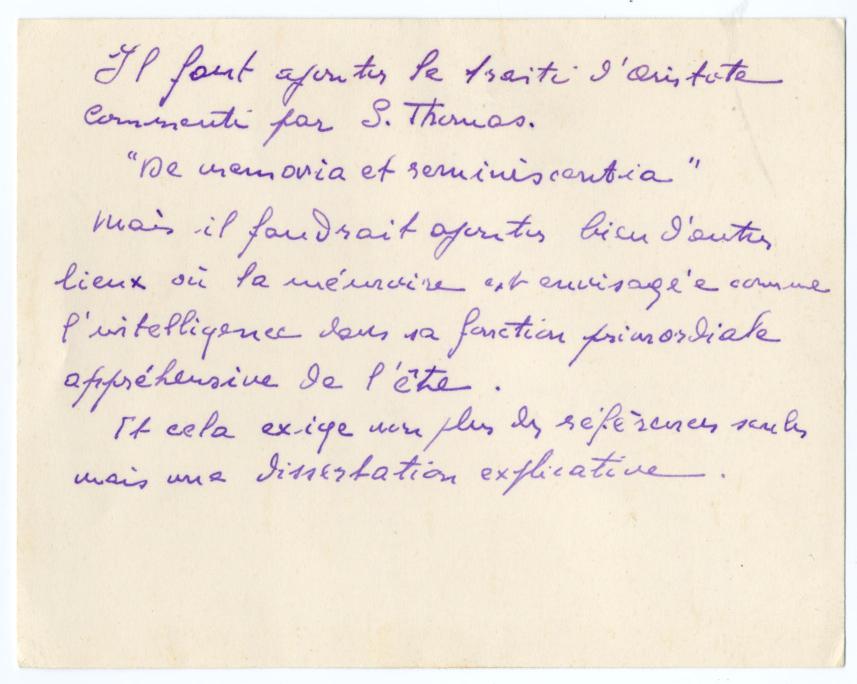 Il faut ajouter le traité d'Aristote
commenté par S. Thomas.
"De memoria et reminiscentia"
Mais il faudrait ajouter bien d'autres
lieux où la mémoire est envisagée comme
l'intelligence dans sa fonction primordiale
appréhensive de l'être.
Et cela exige non plus des références seules
mais une dissertation explicative.